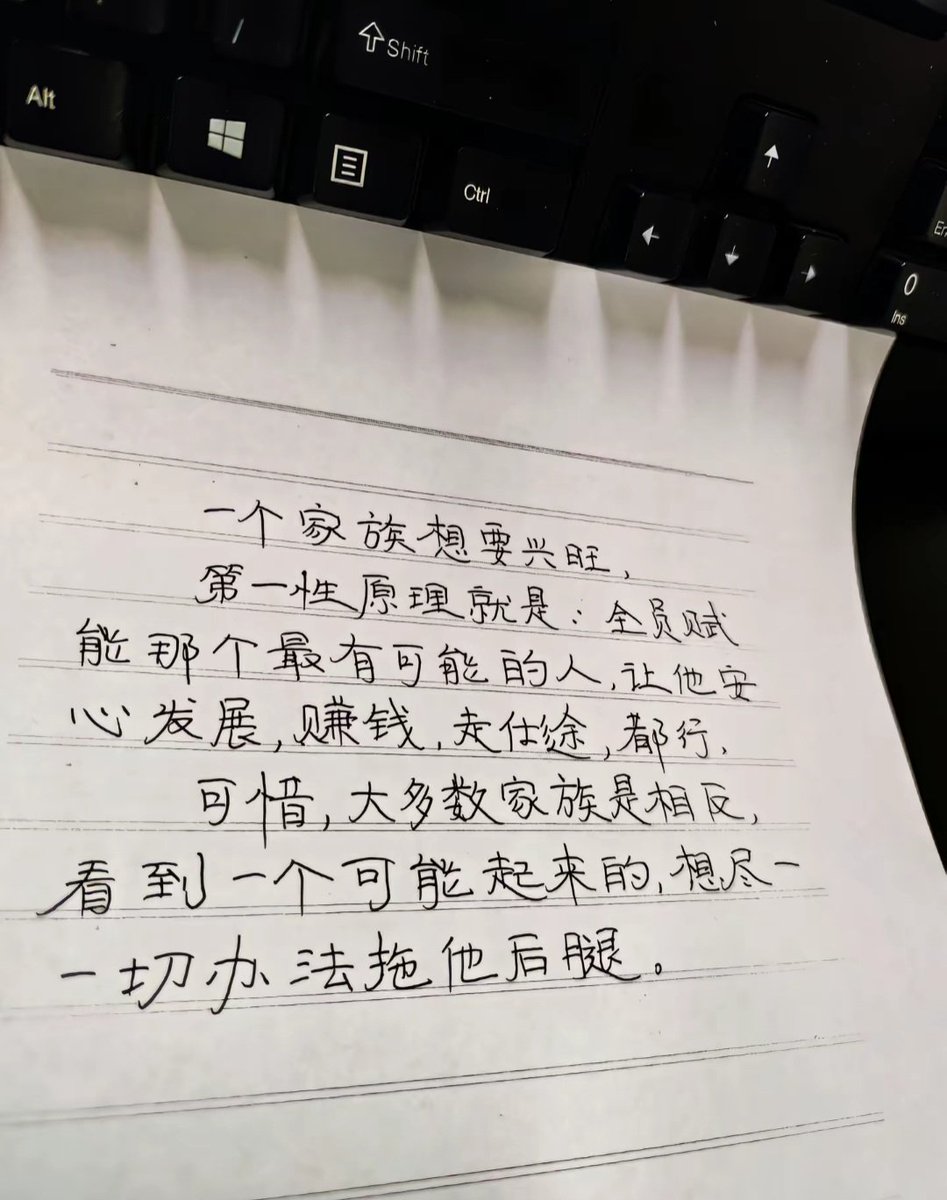 /
Shift
Alt
Ctrl
0
Ins
一个家族想要兴旺,
第一性原理就是: 全员赋
能那个最有可能的人,让他安
心发展,赚钱,走仕途,都行,
可惜,大多数家族是相反,
看到一个可能起来的,想尽一
一切办法拖他后腿。